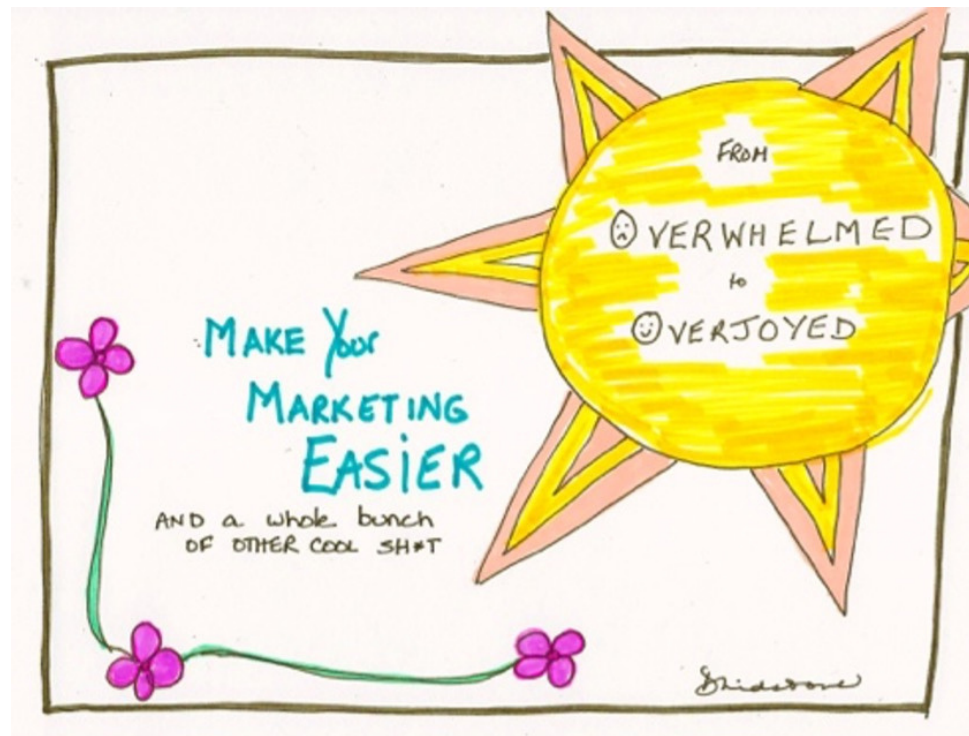 FROM
OVERWHELMED
to
OVERJOYED
MAKE Your
MARKETING
EASiER
AND a whole bunch
OF OTHER COOL SH*T